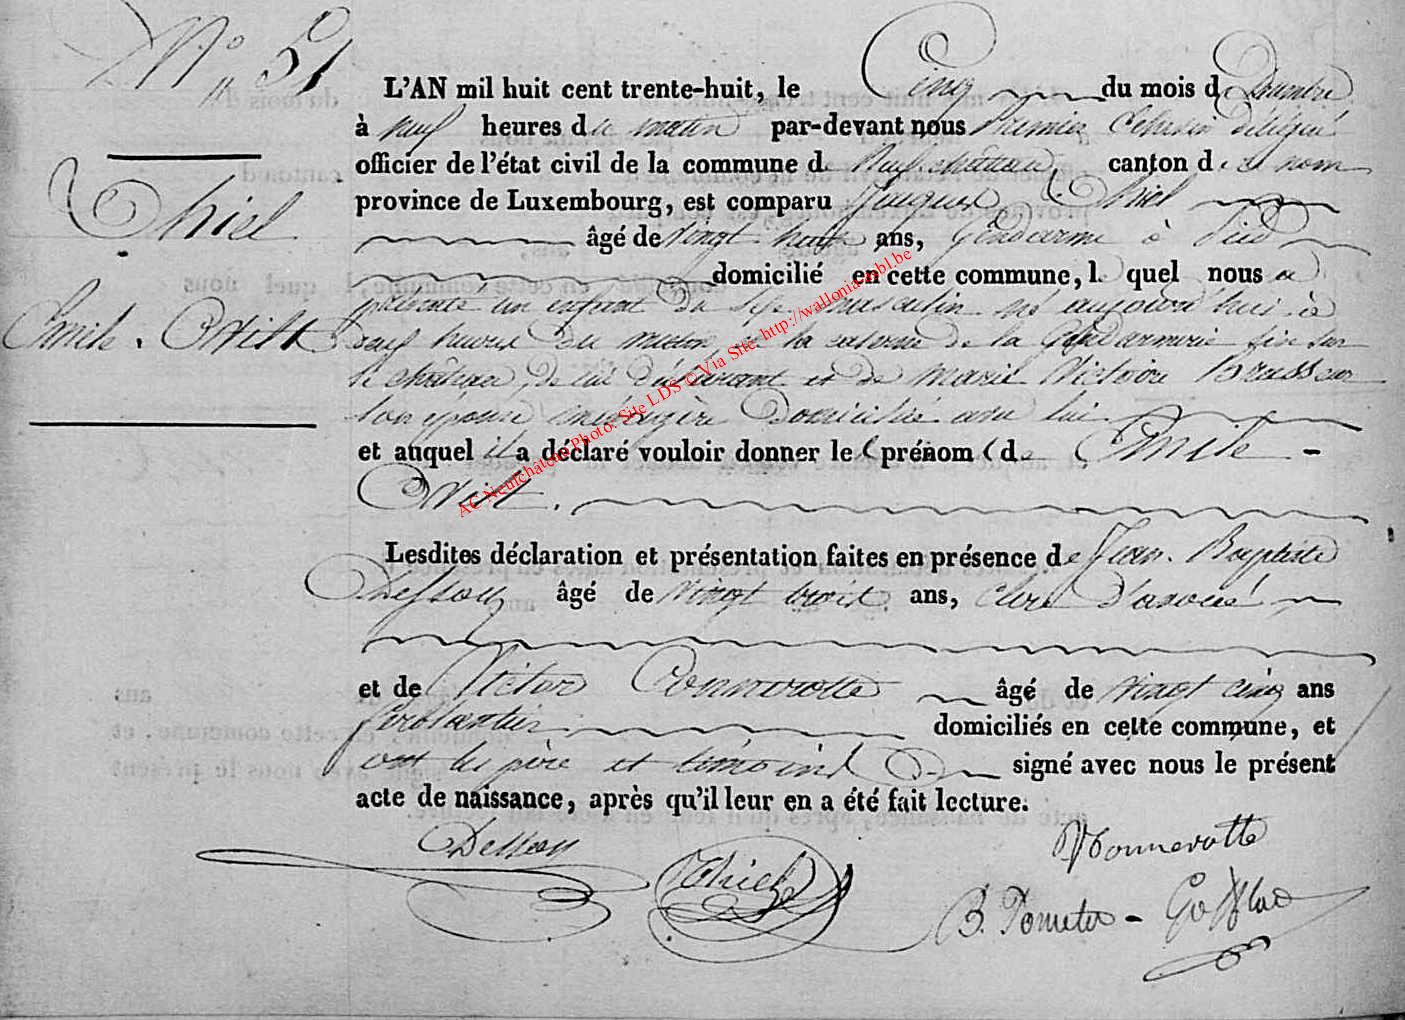 N° 51
Thiel
Emile
L'AN mil huit cent trente-huit, le Cinq du mois de
à neuf heures du matin par-devant nous Premier Echevin délégué
officier de l'état civil de la commune de Neufchâteau canton de ce nom
province de Luxembourg, est comparu Jacques Thiel
âgé de vingt huit ans, Gendarme à Pied
domicilié en cette commune, l quel nous a
présenté un enfant du sexe masculin né aujourd'hui à
heures du matin à la caserne de la Gendarmerie sise sur
le château de lui déclarant et de Marie Victoire Brasseur
son épouse ménagère domiciliée avec lui
et auquel il a déclaré vouloir donner le prénom de Emile -
Lesdites déclaration et présentation faites en présence de Jean-Baptiste
Dessoy âgé de vingt trois ans, clerc d'avoué
et de Victor Connerotte âgé de vingt cinq ans
domiciliés en cette commune, et
ont les père et témoins signé avec nous le présent
acte de naissance, après qu'il leur en a été fait lecture.
Dessoy
Thiel
VConnerotte
AC Neufchâteau Photo: Site LDS © Via Site: http://wallonia-asbl.be